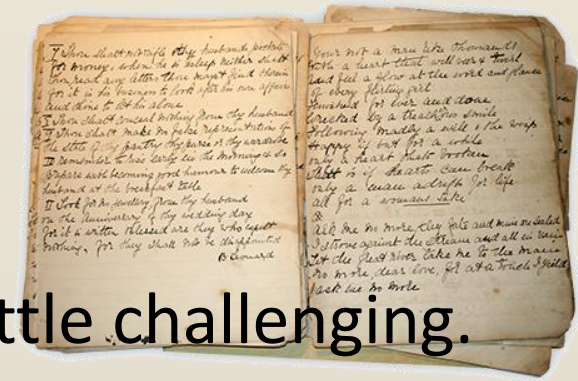 7 Thou shalt not rifle thy husbands pockets
for money, when he is asleep neither shalt
thou read any letters thou mayst find therein
for it is his business to look after his own affairs
and thine to let his alone
Thou shalt conceal nothing from thy husband
Thou shalt make no false representations of
the state of thy pantry thy purse or thy wardrobe
remember to rise early in the morning & so
prepare with becoming good humour to welcome thy
husband at the breakfast table
Look for no jewellery from thy husband
on the anniversary of thy wedding day
for it is written blessed are they who expect
nothing, for they shall not be disappointed
B Leonard
Your not a man like thousands
with a heart that will
and feel a glow at the word and glance
of every flirting girl
for ever and done
Wrecked by a treach'rous smile
Following madly a will o the wisp
Happy if but for a while
only a heart that's broken
That is if hearts can break
only a man adrift for life
all for a womans sake
Ask me no more, thy fate and mine are sealed
I strove against the stream and all in vain
Let the great river take me to the main
no more dear love, for at a touch I yield
ask me no more
ttle challenging.